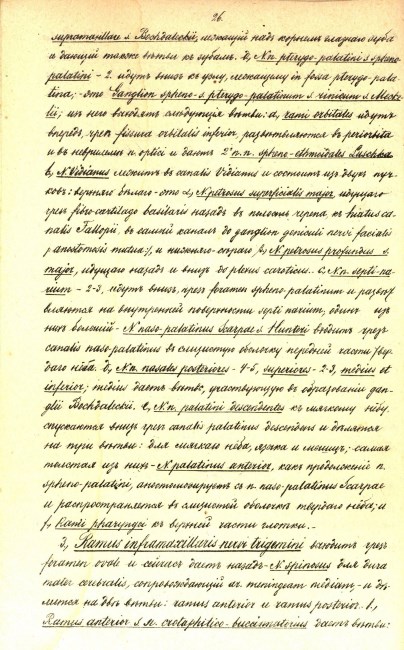 26.
supramaxillare s. Bochdaleckii, лежащій надъ корнемъ глазнаго зуба
и дающій также вѣтви къ зубамъ. b, N.n. pterygo-palatini s. spheno-
palatini - 2. идутъ внизъ къ узлу, лежащему in fossa pterygo-pala-
tina; - это Ganglion spheno-s. pterygo-palatinum s. rhinicum s. Mecke-
lii; изъ него выходятъ слѣдующія вѣтви: a, rami orbitales идутъ
впередъ, чрезъ fissura orbitalis inferior, развѣтвляются въ periorbita
и въ неврилемѣ n. optici и даютъ 2 n. n. spheno-ethmoidales Luschka
b, N. Vidianus лежитъ въ canalis Vidianus и состоитъ изъ двухъ пуч-
ковъ: верхняго бѣлаго - это α, N. petrosus superficialis major, идущаго
чрезъ fibro-cartilago basilaris назадъ въ полость черепа къ hiatus ca-
nalis Fallopii, въ самый каналъ до ganglion geniculi nervi facialis
(anastomosis mutua;), и нижняго-сѣраго β, N. petrosus profundus s.
major, идущаго назадъ и внизъ до plexus caroticus. c, N.n. septi na-
rium - 2-3, идутъ внизъ, чрезъ foramen spheno-palatinum и развѣт-
вляются на внутренней поверхности septi narium, одинъ изъ
нихъ большій - N. naso-palatinus Scarpae s. Hunteri входитъ чрезъ
canalis naso-palatinus въ слизистую оболочку передней части тверд-
аго нёба. d, N.n. nasales posteriores - 4-5, superiores - 2-3, medius et
inferior; medius даетъ вѣтвь, участвующую въ образованіи gan-
glii Bochdaleckii. e, N.n. palatini descendentes къ мягкому нёбу
спускаются внизъ чрезъ canalis palatinus descendens и дѣлятся
на три вѣтви: для мягкаго нёба, язчка и мышцъ; самая
толстая изъ нихъ - N. palatinus anterior, какъ продолженіе n.
spheno-palatini, анастомозируетъ съ n. naso-palatinus Scarpae
и распространяется въ слизистой оболочкѣ твердаго нёба; и
f, Rami pharyngei къ верхней части глотки.
3, Ramus inframaxillaris nervi trigemini выходитъ чрезъ
foramen ovale и сейчасъ даетъ назадъ - N. spinosus для dura
mater cerebralis, сопровождающій art. meningeam mediam, - и дѣ-
лится на двѣ вѣтви: ramus anterior и ramus posterior. 1,
Ramus anterior s. n. crotaphitico-buccinatorius даетъ вѣтви: